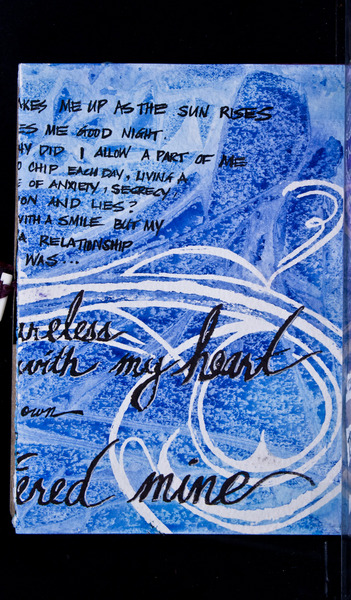 AKES ME UP AS THE SUN RISES
ES ME GOOD NIGHT.
HY DID I ALLOW A PART OF ME
O CHIP EACH DAY, LIVING A
E OF ANXIETY, SECRECY
ON AND LIES?
WITH A SMILE BUT MY
A RELATIONSHIP
WAS...
areless
with my heart
own
ered mine